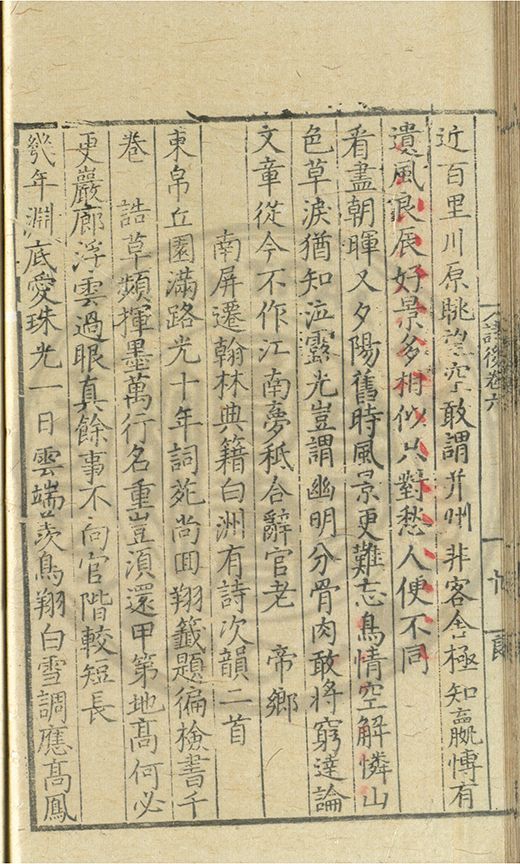 詩後卷六
近百里川原眺望空敢謂并州非客舍極知嬴慱有
遺風良辰好景多相似只對愁人便不同
看盡朝暉又夕陽舊時風景更難忘鳥情空解憐山
色草淚猶知泣露光豈謂幽明分骨肉敢將窮達論
文章從今不作江南夢秖合辭官老　帝鄉
南屏遷翰林典籍白洲有詩次韻二首
束帛丘園滿路光十年詞苑尚囬翔籤題徧檢書千
卷　誥草頻揮墨萬行名重豈須還甲第地高何必
更巖廊浮雲過眼真餘事不向官階較短長
幾年淵底愛珠光一日雲端羨鳥翔白雪調應高鳳